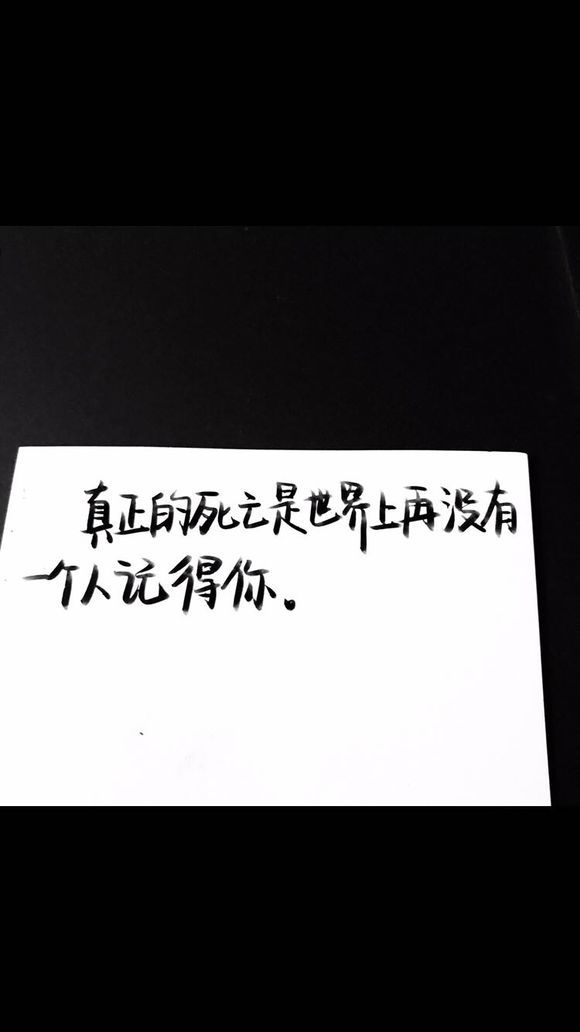 真正的死亡是世界上再没有
一个人记得你。